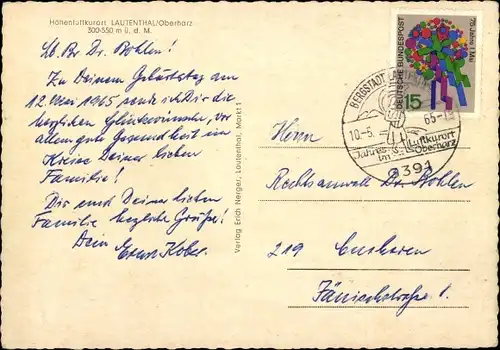 Höhenluftkurort LAUTENTHAL/Oberharz
300-550 m ü. d. M.
Lb. Br. Dr. Bohlen!
Zu Deinem Geburtstag am
12. Mai 1965 sende ich Dir die
herzlichen Glückwünsche, vor
allem gute Gesundheit im
Kreise Deiner lieben
Familie!
Dir und Deiner lieben
Familie herzliche Grüße!
Dein Ernst Kober.
Verlag Erich Nerger, Lautenthal, Markt 1
75 Jahre 1. Mai
DEUTSCHE BUNDESPOST
15
BERGSTADT LAUTENTHAL
10.-5. 65-
Luftkurort
im Oberharz
3391
Herrn
Rechtsanwalt Dr. Bohlen
219 Cuxhaven